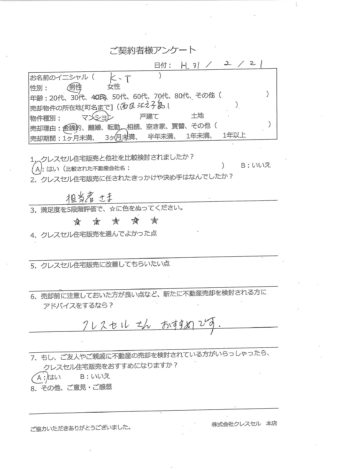 ご契約者様アンケート
日付： H.31 / 2 / 21
お名前のイニシャル（ K.T ）
性別： 男性 女性
年齢：20代、30代、40代、50代、60代、70代、80代、その他（ ）
売却物件の所在地(町名まで)（
物件種別： マンション 戸建て 土地
売却理由：金銭的、離婚、転勤、相続、空き家、買替、その他（ ）
売却期間：1ヶ月未満、 3ヶ月未満、 半年未満、 1年未満、 1年以上
1、クレスセル住宅販売と他社を比較検討されましたか？
A：はい（比較された不動産会社名： ） B：いいえ
2、クレスセル住宅販売に任されたきっかけや決め手はなんでしたか？
担当者さま
3、満足度を5段階評価で、☆に色をぬってください。
★ ★ ★ ★ ★
4、クレスセル住宅販売を選んでよかった点
5、クレスセル住宅販売に改善してもらいたい点
6、売却前に注意しておいた方が良い点など、新たに不動産売却を検討される方に
アドバイスをするなら？
クレスセルさん おすすめです。
7、もし、ご友人やご親戚に不動産の売却を検討されている方がいらっしゃったら、
クレスセル住宅販売をおすすめになりますか？
A：はい B：いいえ
8、その他、ご意見・ご感想
ご協力いただきありがとうございました。 株式会社クレスセル 本店